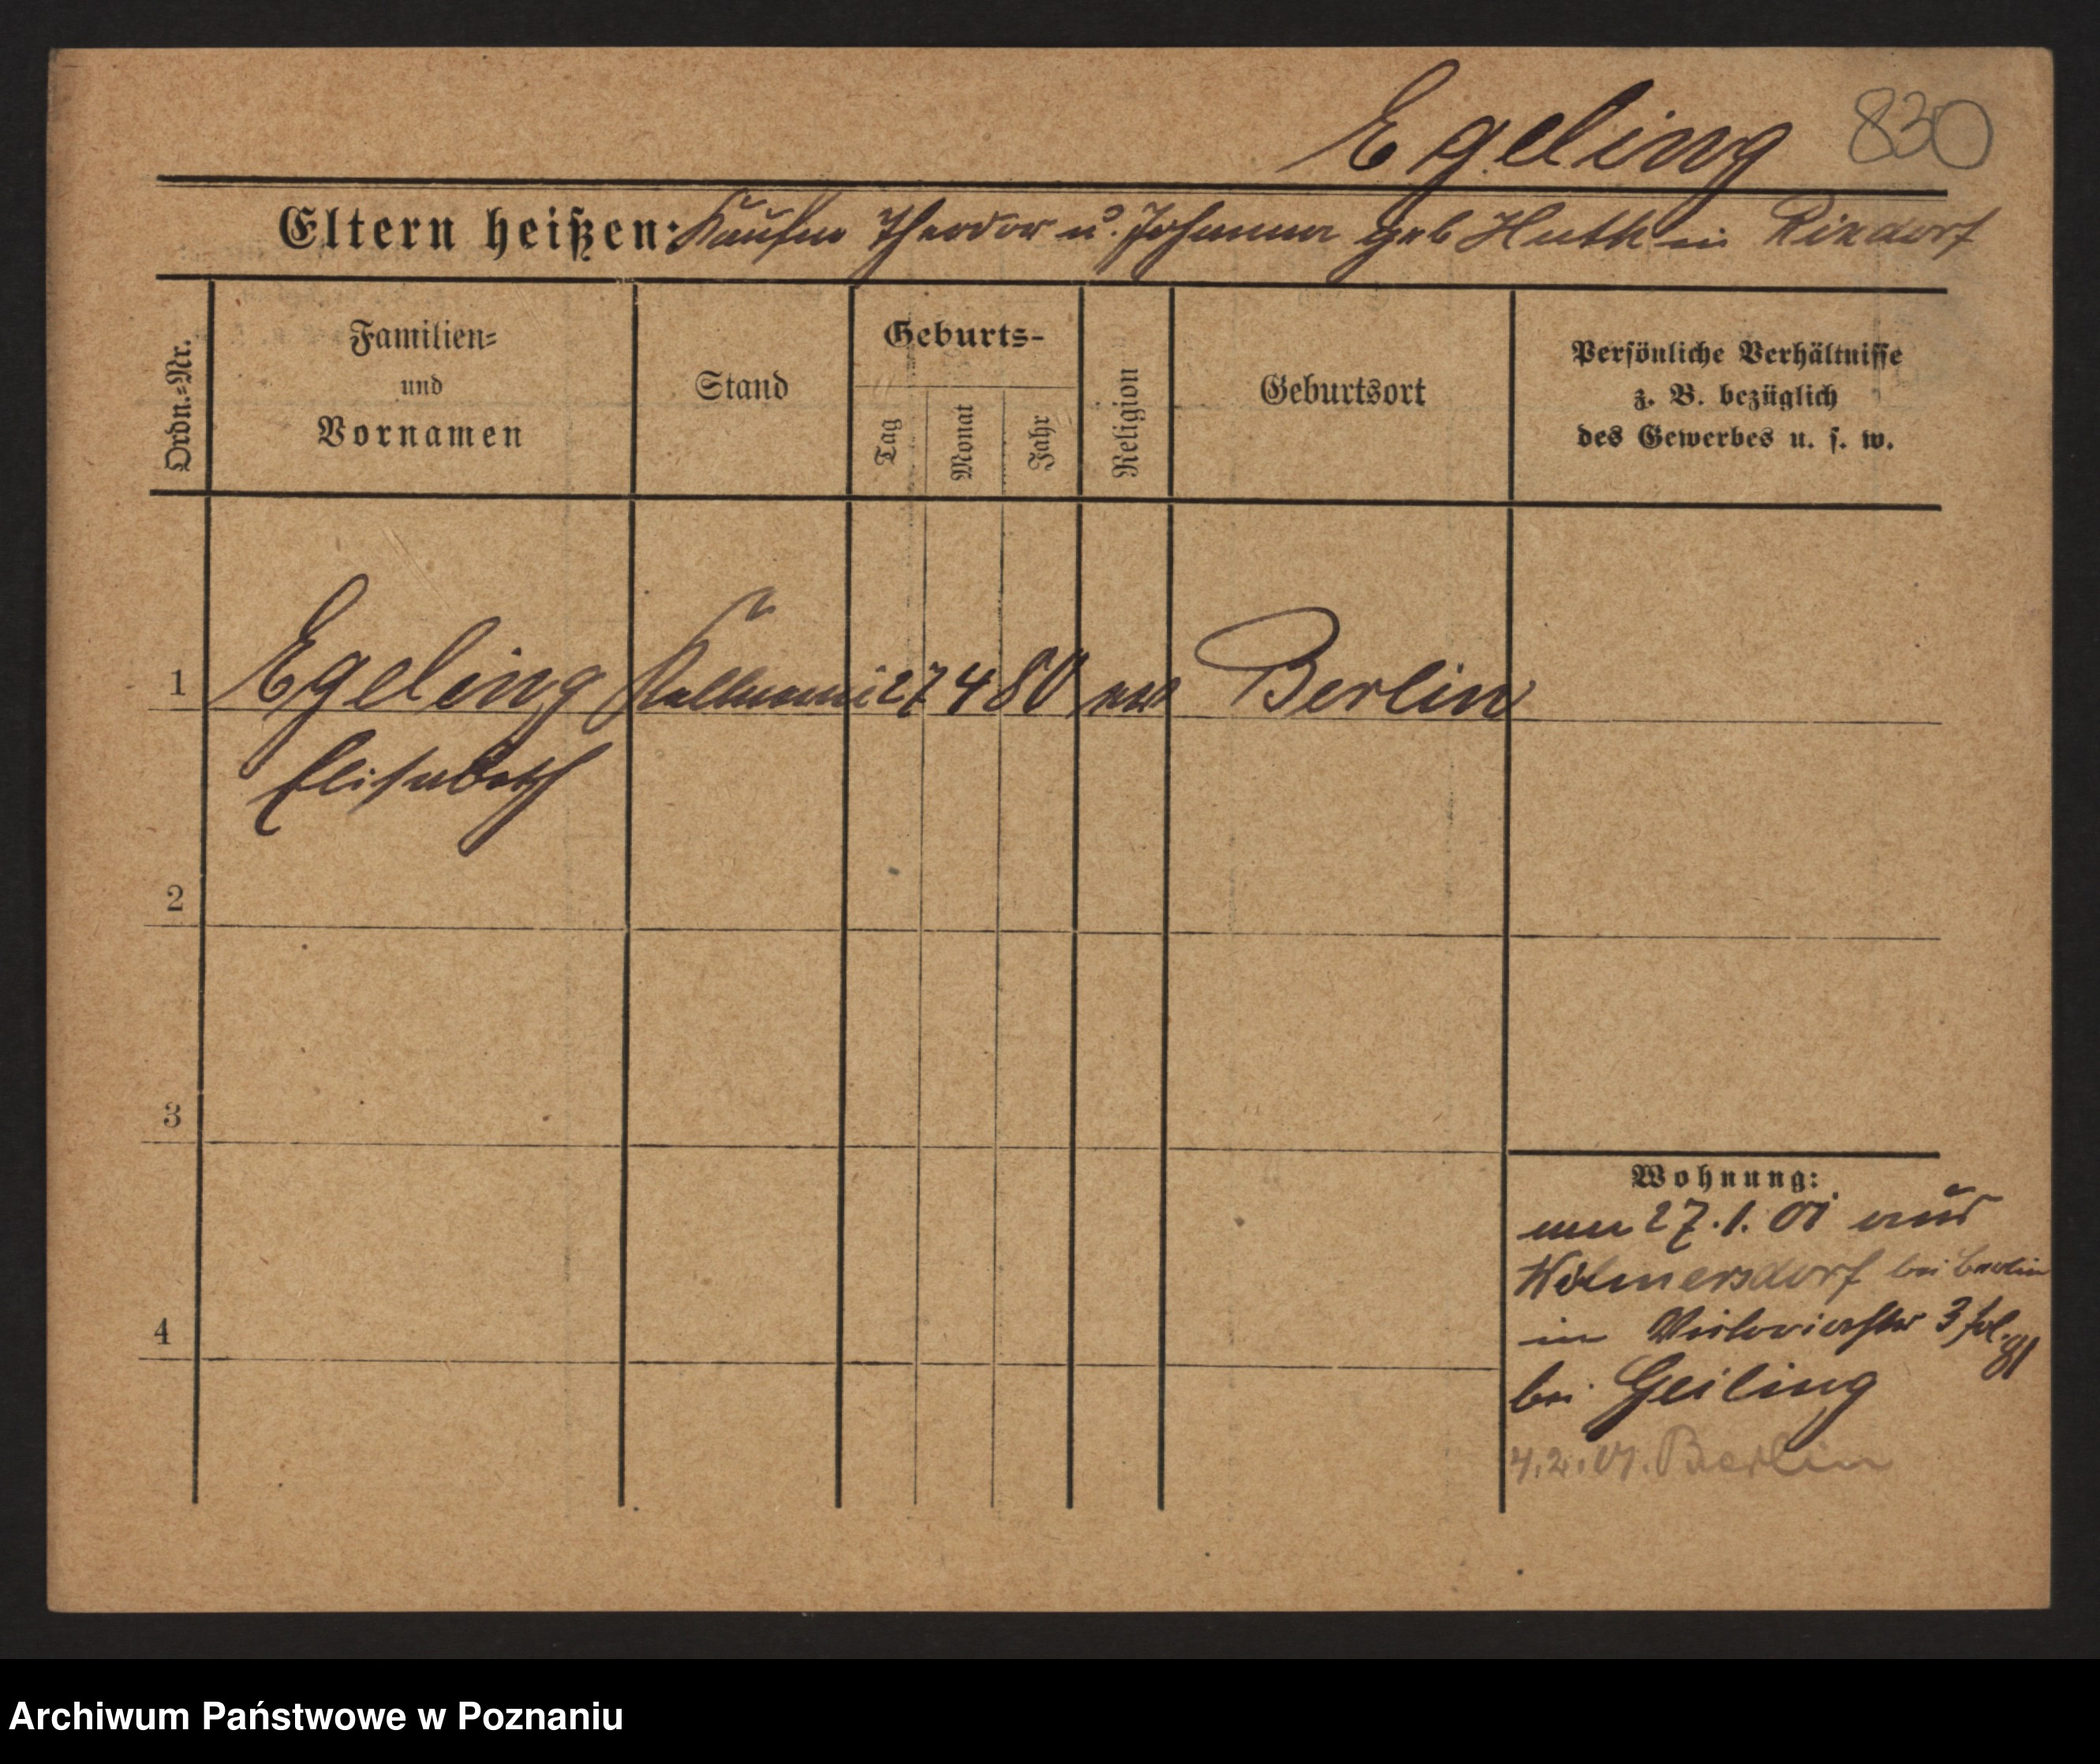 Egeling 830
Eltern heißen: Kaufm Theodor u. Johanna geb Huth in Rixdorf
Ordn.=Nr.
Familien=
und
Vornamen
Stand
Geburts-
Tag
Monat
Jahr
Religion
Geburtsort
Persönliche Verhältnisse
z. B. bezüglich
des Gewerbes u. s. w.
1 Egeling 27 4 80 Berlin
Elisabeth
2
3
4
Wohnung:
27.1.01 aus
Wilmersdorf bei Berlin
in Victoriastr 3
bei Geiling
4.2.01. Berlin
Archiwum Państwowe w Poznaniu